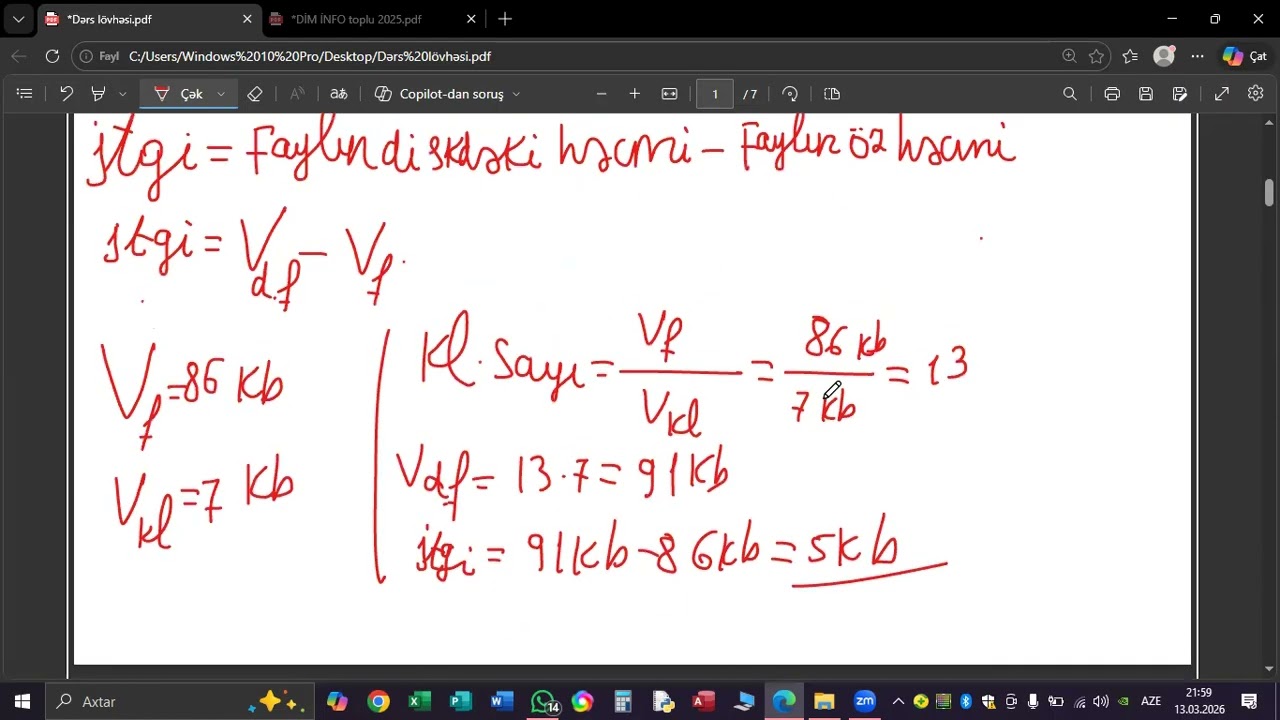 *Dərs lövhəsi.pdf
*DİM İNFO toplu 2025.pdf
Fayl C:/Users/Windows%2010%20Pro/Desktop/Dərs%20lövhəsi.pdf
Çat
Çək
aあ
Copilot-dan soruş
1 / 7
İtgi = Faylın diskdəki həcmi – Faylın öz həcmi
İtgi = Vd.f – Vf.
Vf = 86 Kb
Vkl = 7 Kb
Kl. Sayı = Vf / Vkl = 86 kb / 7 kb = 13
Vdf = 13.7 = 91 Kb
İtgi = 91 kb – 86 kb = 5 kb
Axtar
14
zm
AZE
21:59
13.03.2026